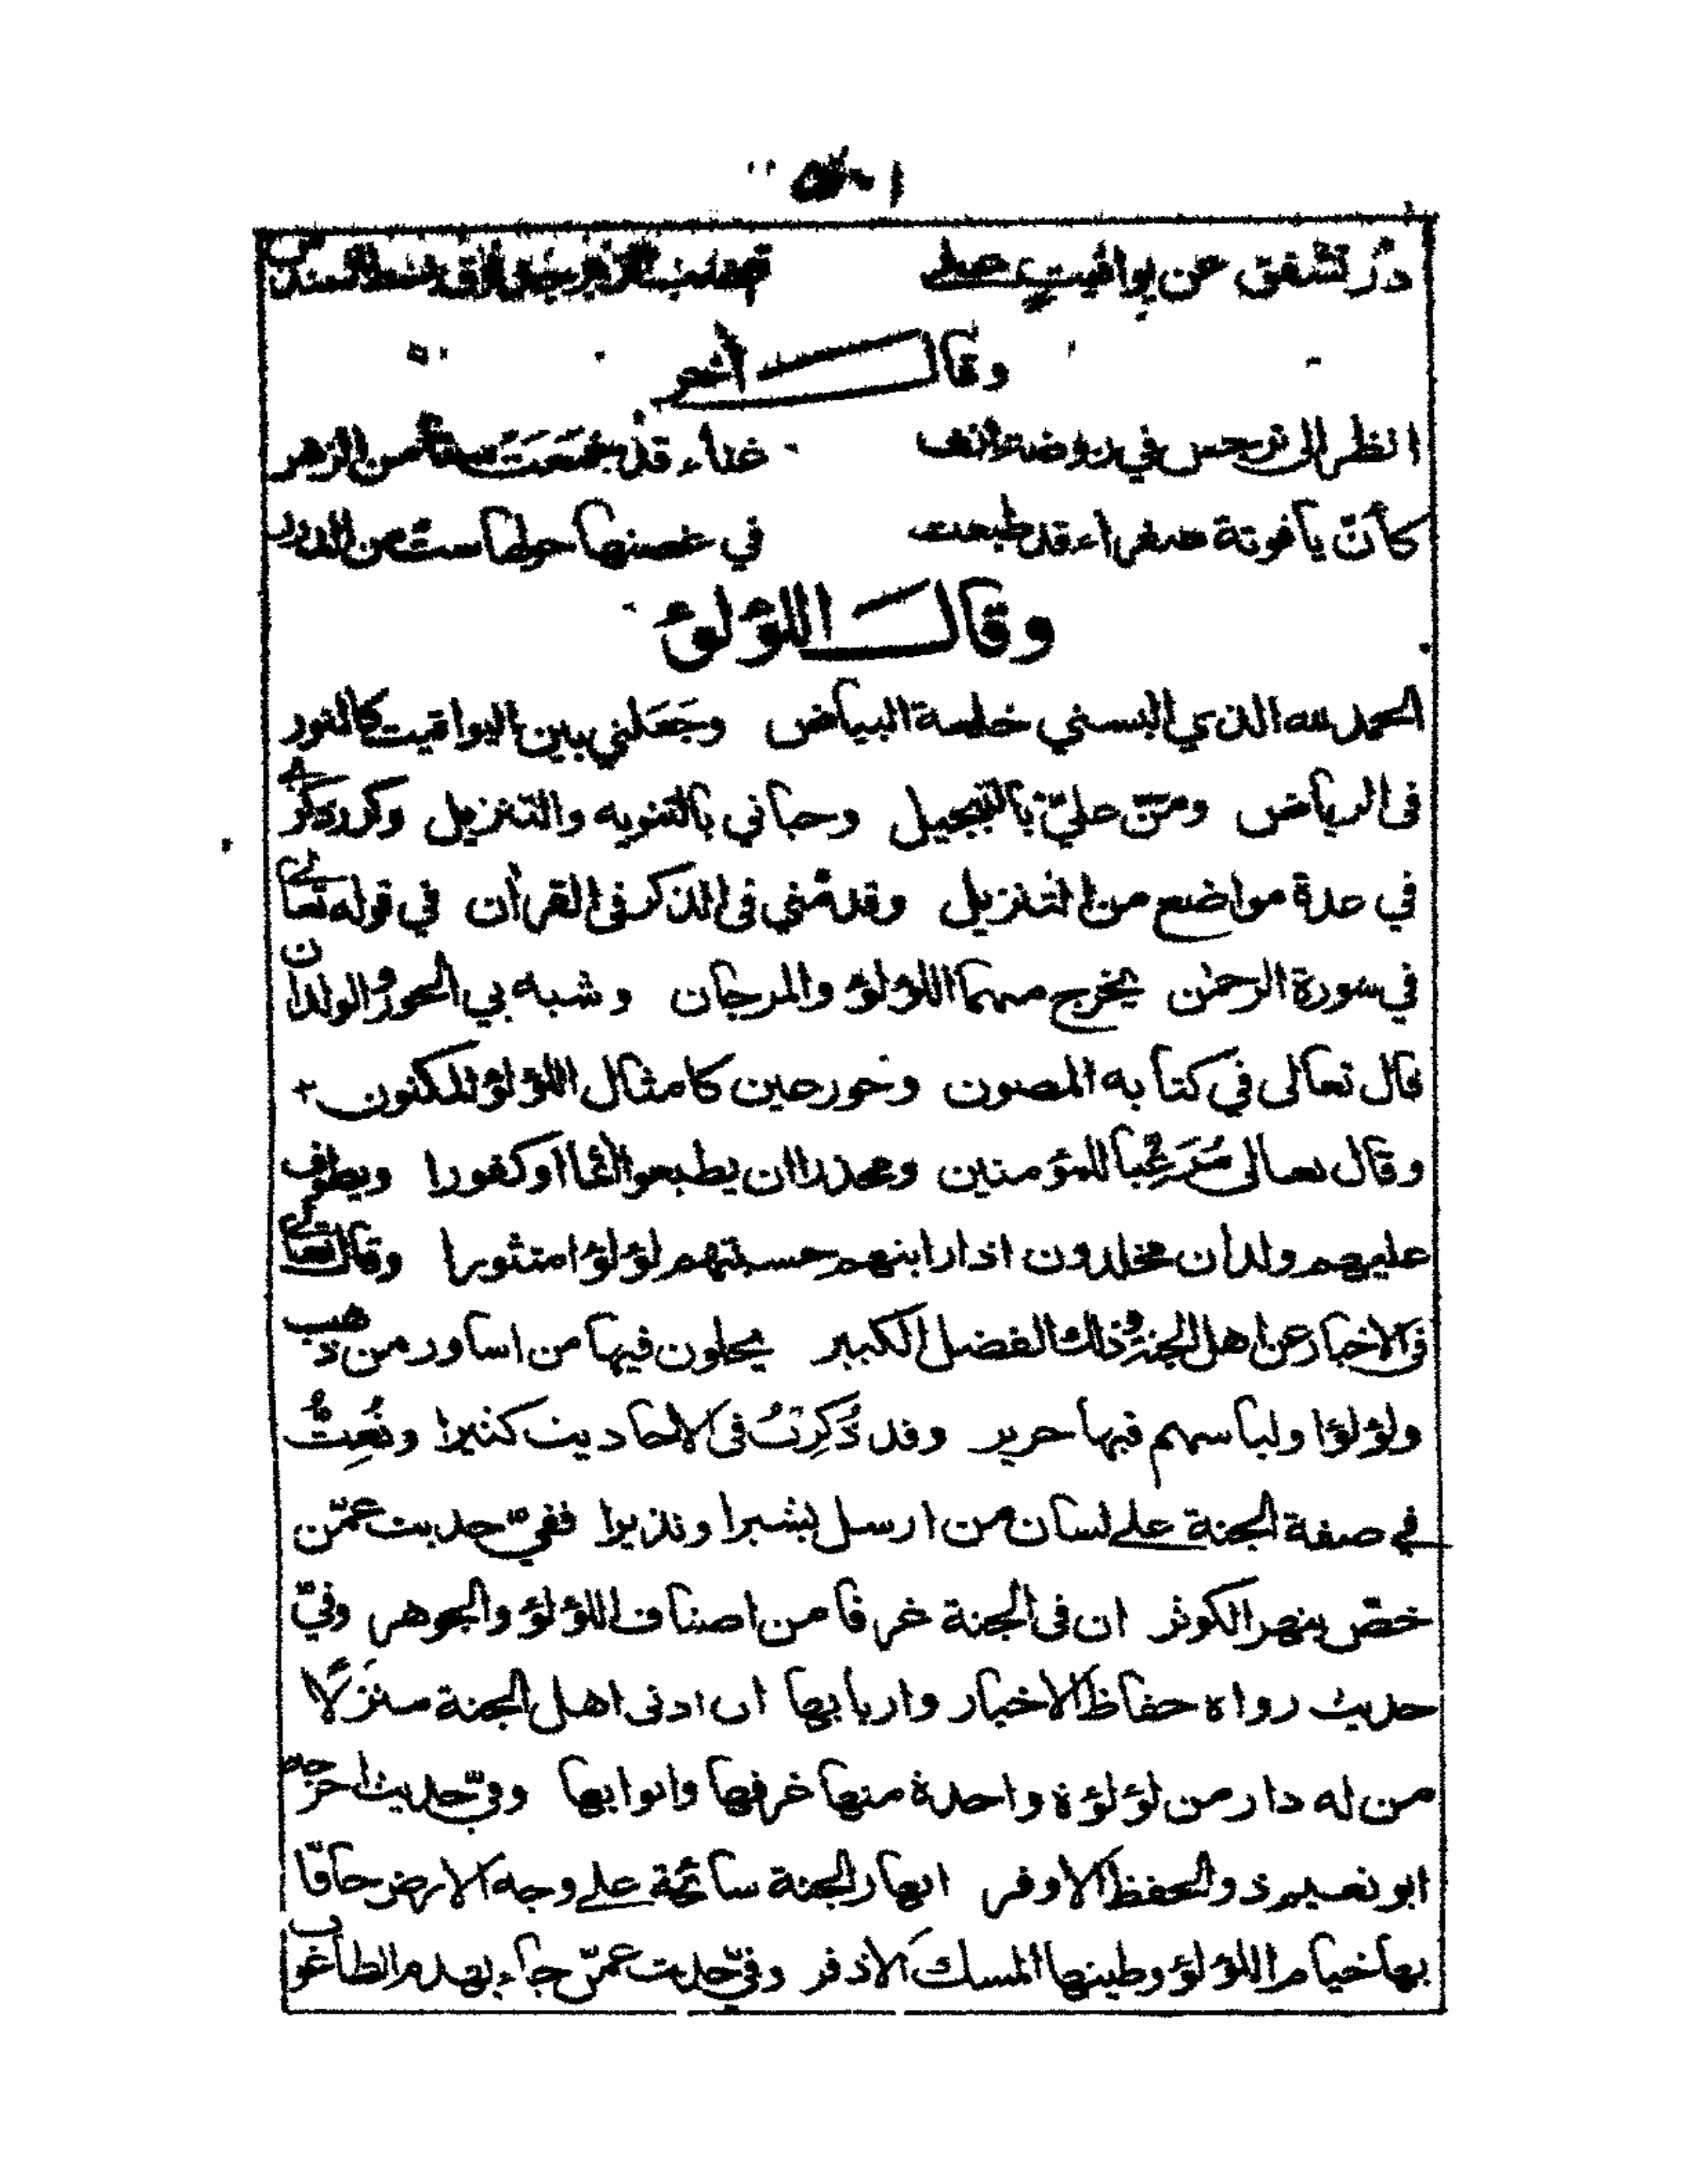 درّ تشقق عن يواقيت على
وقال آخر
انظر الى نرجس في روضة انف غناء قد جمعت ستا من الزهر
كأنّ ياقوتة صفراء قد طبعت في غصنها حولها ستّ من الدرر
وقال اللؤلؤ
الحمد لله الذي البسني خلعة البياض وجَعَلني بين اليواقيت كالنور
فى الرياض ومَنّ عليّ بالتبجيل وحباني بالتنويه والتنزيل وكرر ذكرى
في عدة مواضع من التنزيل وقدمني فى الذكر فى القرآن في قوله تعالى
في سورة الرحمٰن يخرج منهما اللؤلؤ والمرجان وشبه بي الحور والولدان
قال تعالى في كتابه المصون وحور عين كامثال اللؤلؤ المكنون
وقال تعالى مُرَغِّبا للمؤمنين ومحذرا ان يطيعوا آثما او كفورا ويطوف
عليهم ولدان مخلدون اذا رايتهم حسبتهم لؤلؤا منثورا وقال تعالى
فى الاخبار عن اهل الجنة وذلك الفضل الكبير يحلون فيها من اساور من ذهب
ولؤلؤا ولباسهم فيها حرير وقد ذُكِرتُ فى الاحاديث كثيرا ونُعِتُّ
في صفة الجنة على لسان من ارسل بشيرا ونذيرا ففي حديث عمّن
خصّ بنهر الكوثر ان فى الجنة غرفا من اصناف اللؤلؤ والجوهر وفي
حديث رواه حفاظ الاخبار واربابها ان ادنى اهل الجنة منزَلًا
من له دار من لؤلؤة واحدة منها غرفها وابوابها وفي حديث اخرجه
ابو نعيم ذو الحفظ الاوفر انهار الجنة سائحة على وجه الارض حافّا
بها خيام اللؤلؤ وطينها المسك الاذفر وفي حديث عمّن جاء بهدم الطاغوت